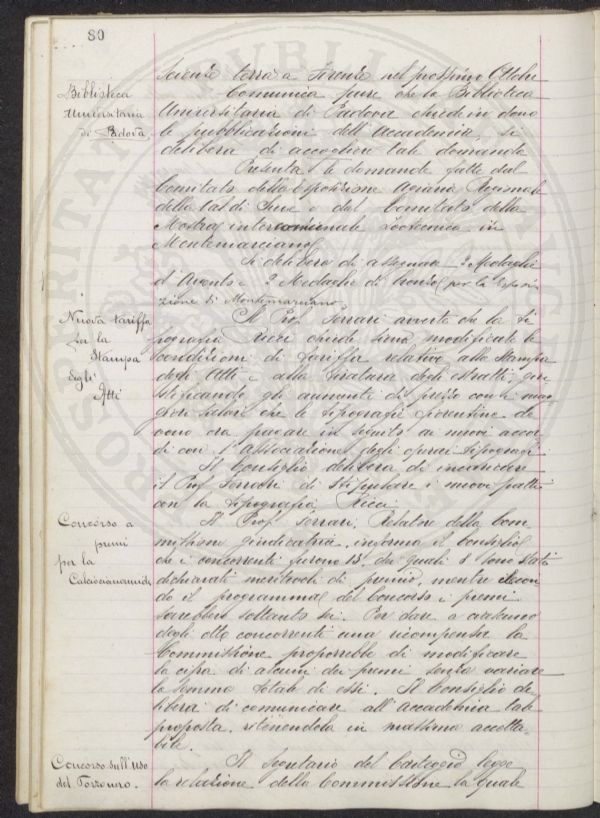 80
Scienze terrà a Firenze nel prossimo Ottobre
Biblioteca
Universitaria
di Padova
Comunica pure che la Biblioteca
Universitaria di Padova chiede in dono
le pubblicazioni dell'Accademia, si
delibera di accogliere tale domanda
Presenta le domande fatte dal
Comitato della Esposizione Agraria Regionale
della e dal Comitato della
Mostra intercomunale Zootecnica in
Montemarciano
Si delibera di assegnare 2 Medaglie
d'Argento e 2 Medaglie di bronzo per la Esposi
zione di Montemarciano
Nuova tariffa
per la
Stampa
degli
Atti
Il Prof. Ferrari avverte che la ti
pografia Ricci chiede siano modificate le
condizioni di tariffa relative alla stampa
degli Atti e alla tiratura degli estratti, giu
stificando gli aumenti di prezzo con i mag
giori salari che le tipografie fiorentine de
vono ora pagare in seguito ai nuovi accor
di con l'Associazione degli operai tipografi
Il Consiglio delibera di incaricare
il Prof. Ferrari di stipulare i nuovi patti
con la tipografia Ricci
Concorso a
premi
per la
Calciocianamide
Il Prof. Ferrari, Relatore della Com
missione giudicatrice, informa il Consiglio
che i concorrenti furono 13, dei quali 8 sono stati
dichiarati meritevoli di premio, mentre secon
do il programma del Concorso i premi
sarebbero soltanto sei. Per dare a ciascuno
degli otto concorrenti una ricompensa la
Commissione proporrebbe di modificare
la cifra di alcuni dei premi senza variare
la somma totale di essi. Il Consiglio de
libera di comunicare all'Accademia tale
proposta, ritenendola in massima accetta
bile.
Concorso sull'uso
del Pozzonero.
Il Segretario del Carteggio legge
la relazione della Commissione la quale